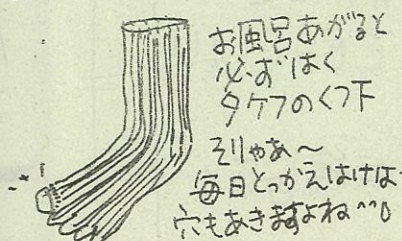 お風呂あがると
必ずはく
タケフのくつ下
そりゃあ〜
毎日とっかえはけば
穴もあきますよね^^0